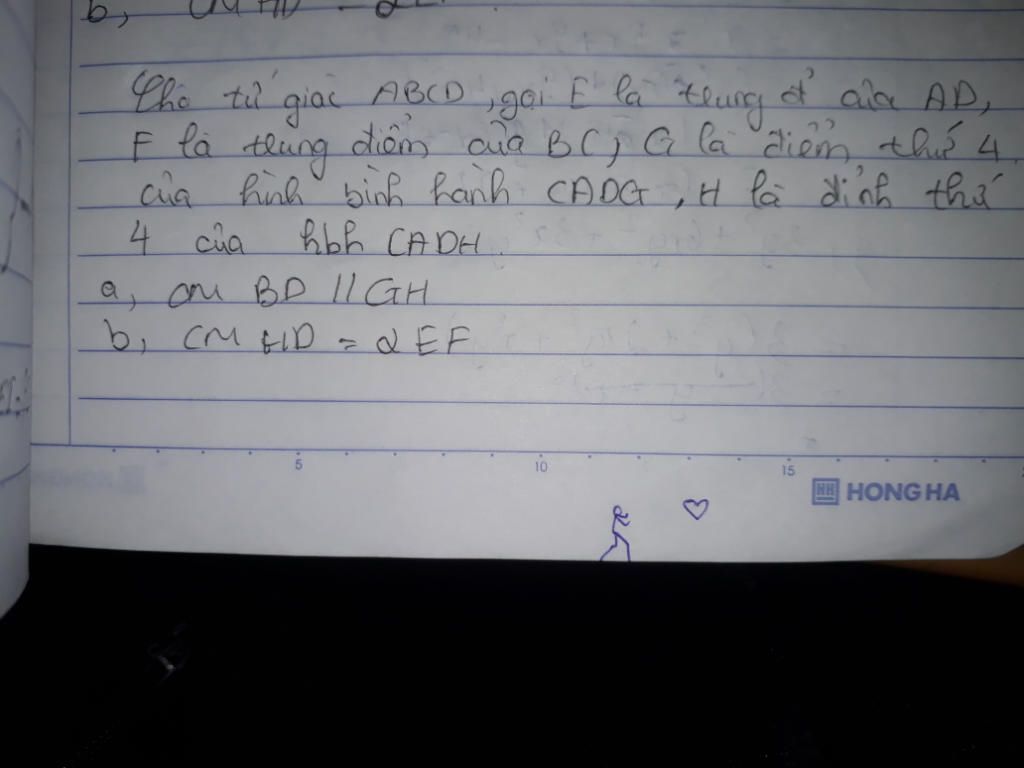 b, CM HD = 2E
Cho tứ giác ABCD, gọi E là trung đ' của AD,
F là trung điểm của BC, G là điểm thứ 4
của hình bình hành CADG, H là đỉnh thứ
4 của hbh CADH
a, CM BD // GH
b, CM HD = 2EF
5 10 15
HH HONG HA